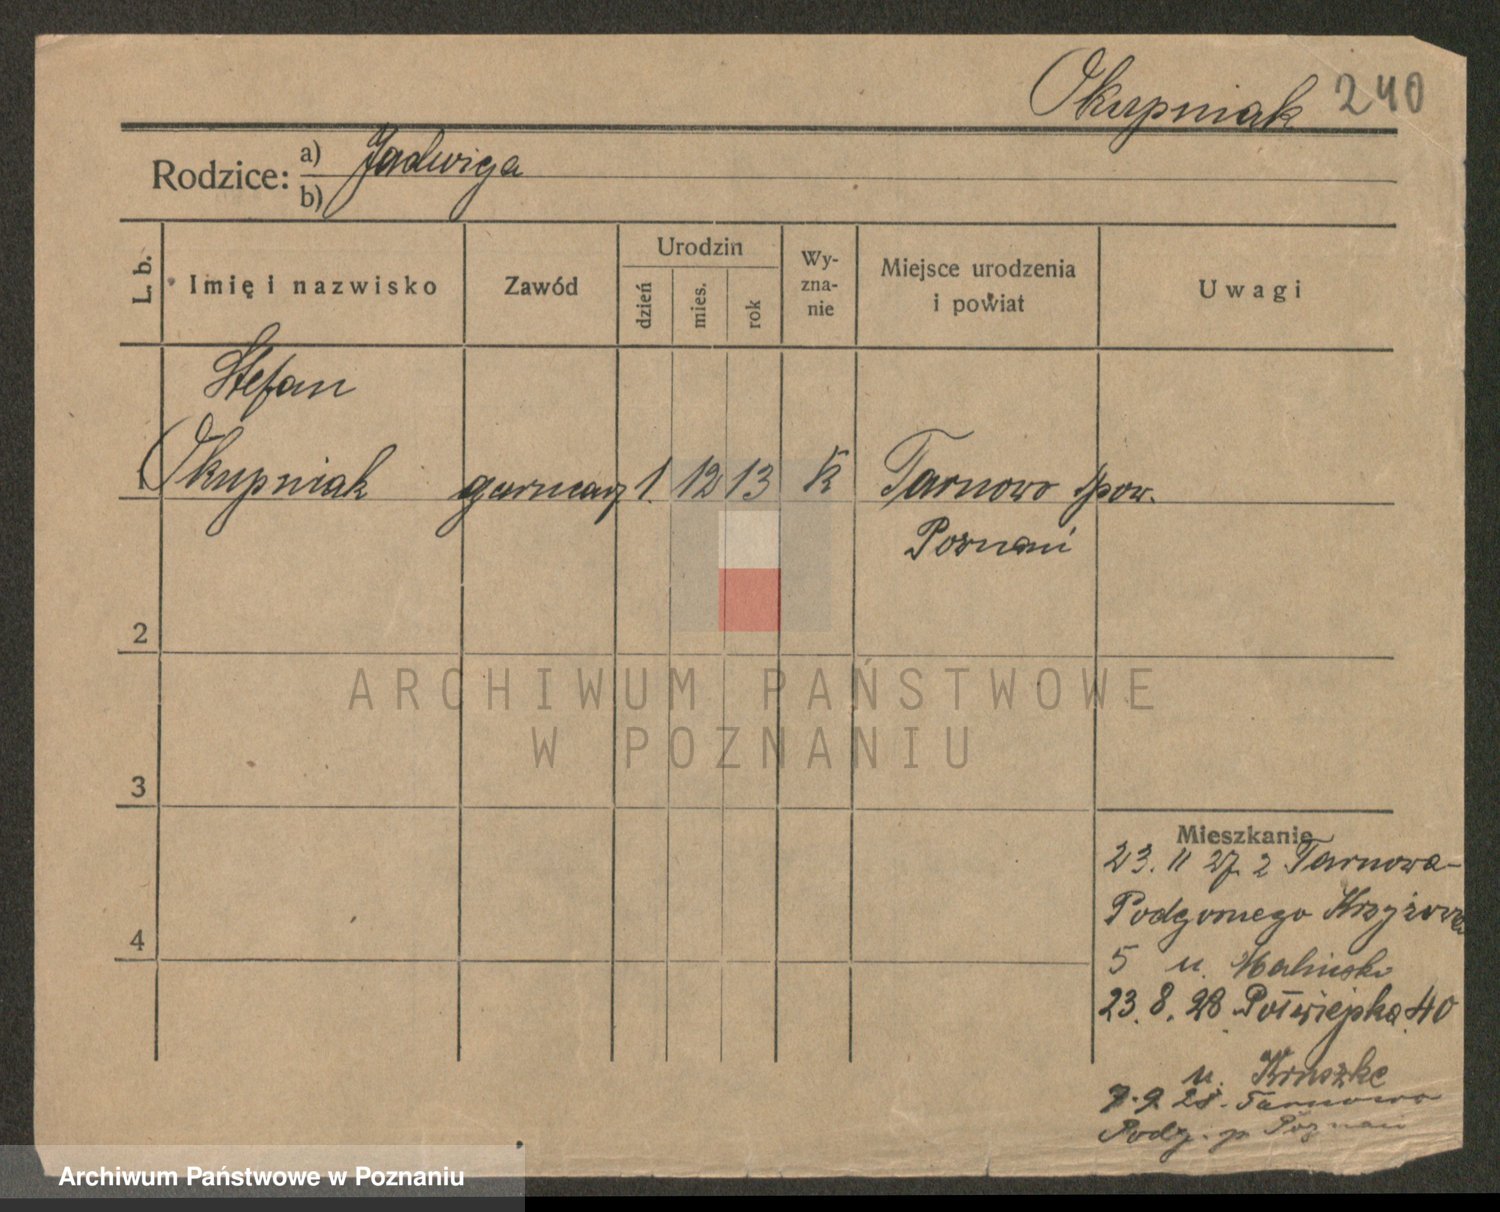 Okupniak 240
Rodzice: a) Jadwiga
b)
L. b. Imię i nazwisko Zawód Urodzin dzień mies. rok Wy-zna-nie Miejsce urodzenia i powiat Uwagi
Stefan
1 Okupniak garncarz 1. 12 13 K Tarnowo pow.
Poznań
2
3
4
Mieszkanie
23. 11 27. z Tarnowa-
Podgornego Krzyżowa
5 u.
23. 8. 28 Półwiejska 40
u. Kruszke
7. 9. 28. Tarnowo
Podg. p. Poznań
ARCHIWUM PAŃSTWOWE
W POZNANIU
Archiwum Państwowe w Poznaniu